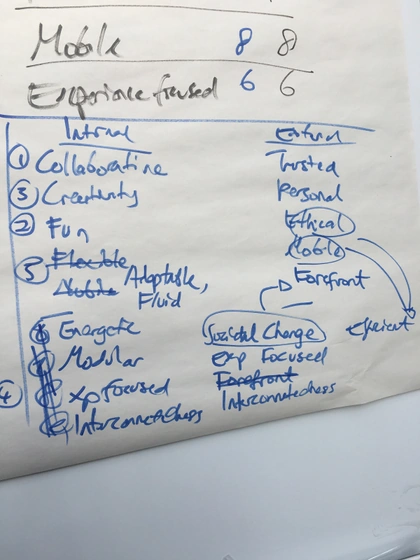 Mobile 8 8
Experience focused 6 6
Internal External
① Collaborative Trusted
③ Creativity Personal
② Fun Ethical
Flexible Mobile
⑤ Mobile Adaptable, Forefront
Fluid
Energetic Societal Change Efficient
Modular Exp Focused
④ xp focused Forefront
Interconnectedness Interconnectedness